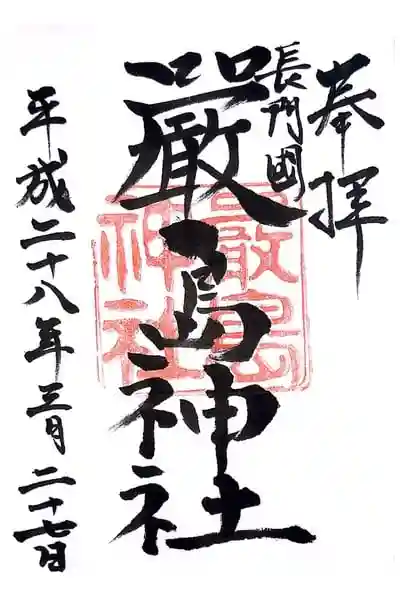 奉拝
長門國
嚴島神社
嚴島
神社
平成二十八年三月二十七日